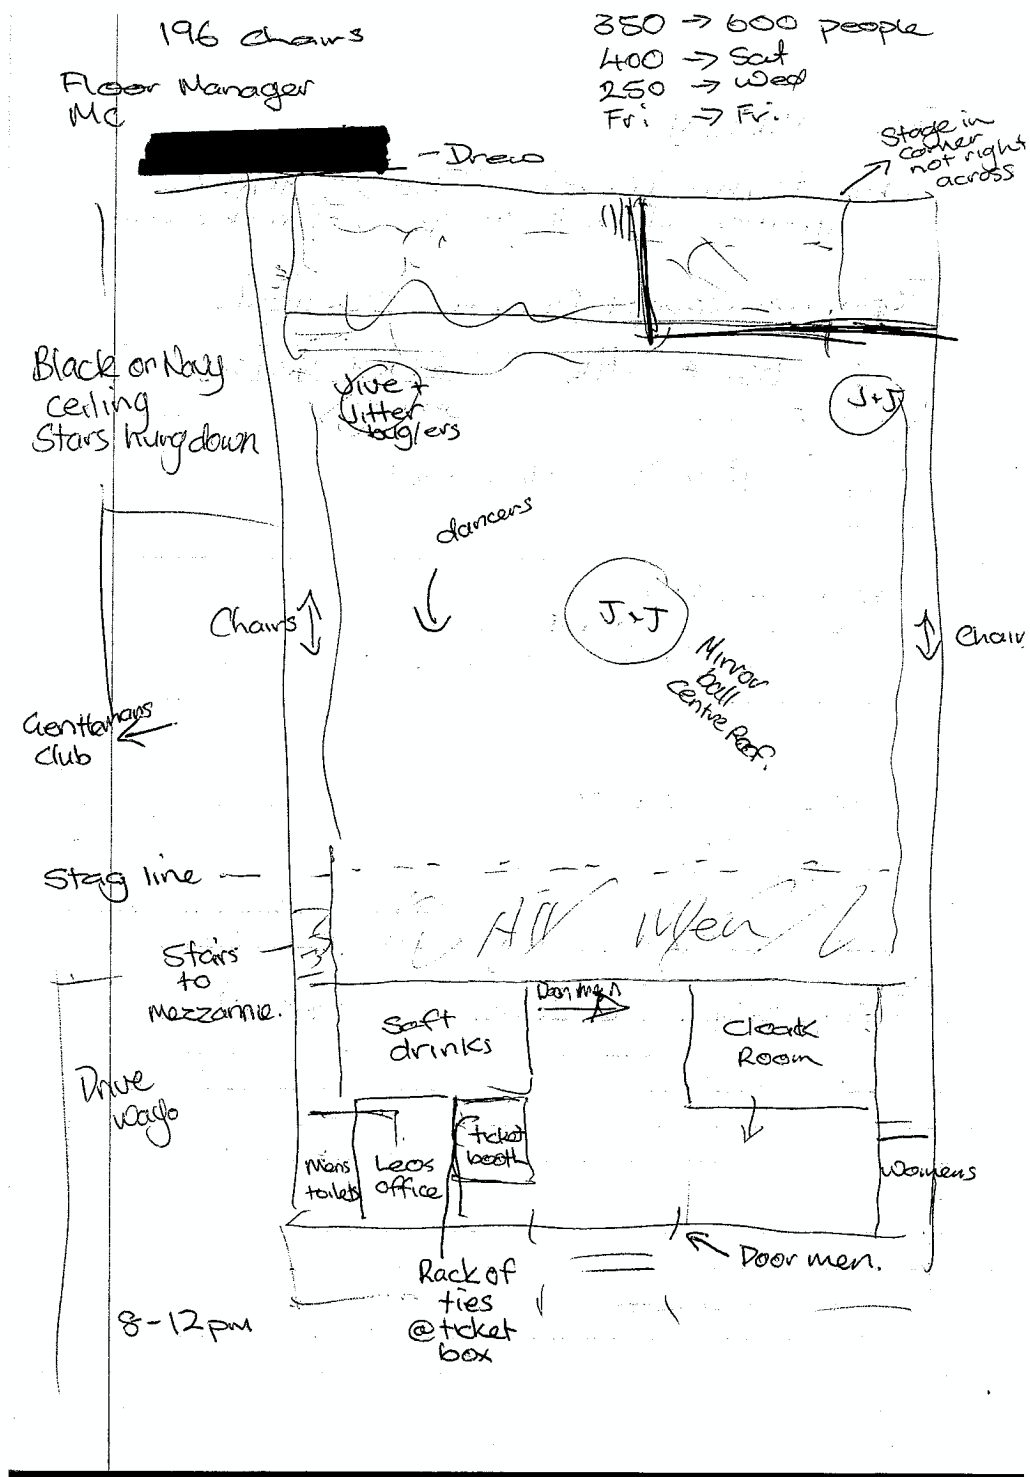 196 chairs
350 → 600 people
400 → Sat
250 → Wed
Fri → Fri.
Floor Manager
MC
- Drew
Stage in
corner
not right
across
Black or Navy
ceiling
Stars hung down
Jive +
Jitter
bug/ers
J+J
dancers
Chairs
J+J
Chair
Mirror
ball
centre Roof.
Gentlemans
club
Stag line
All Men
Stairs
to
Mezzannie.
Door men
Soft
drinks
Cloak
Room
Drive
way
Mens
toilets
Leos
office
ticket
booth
Womens
Door men.
Rack of
ties
@ ticket
box
8-12pm